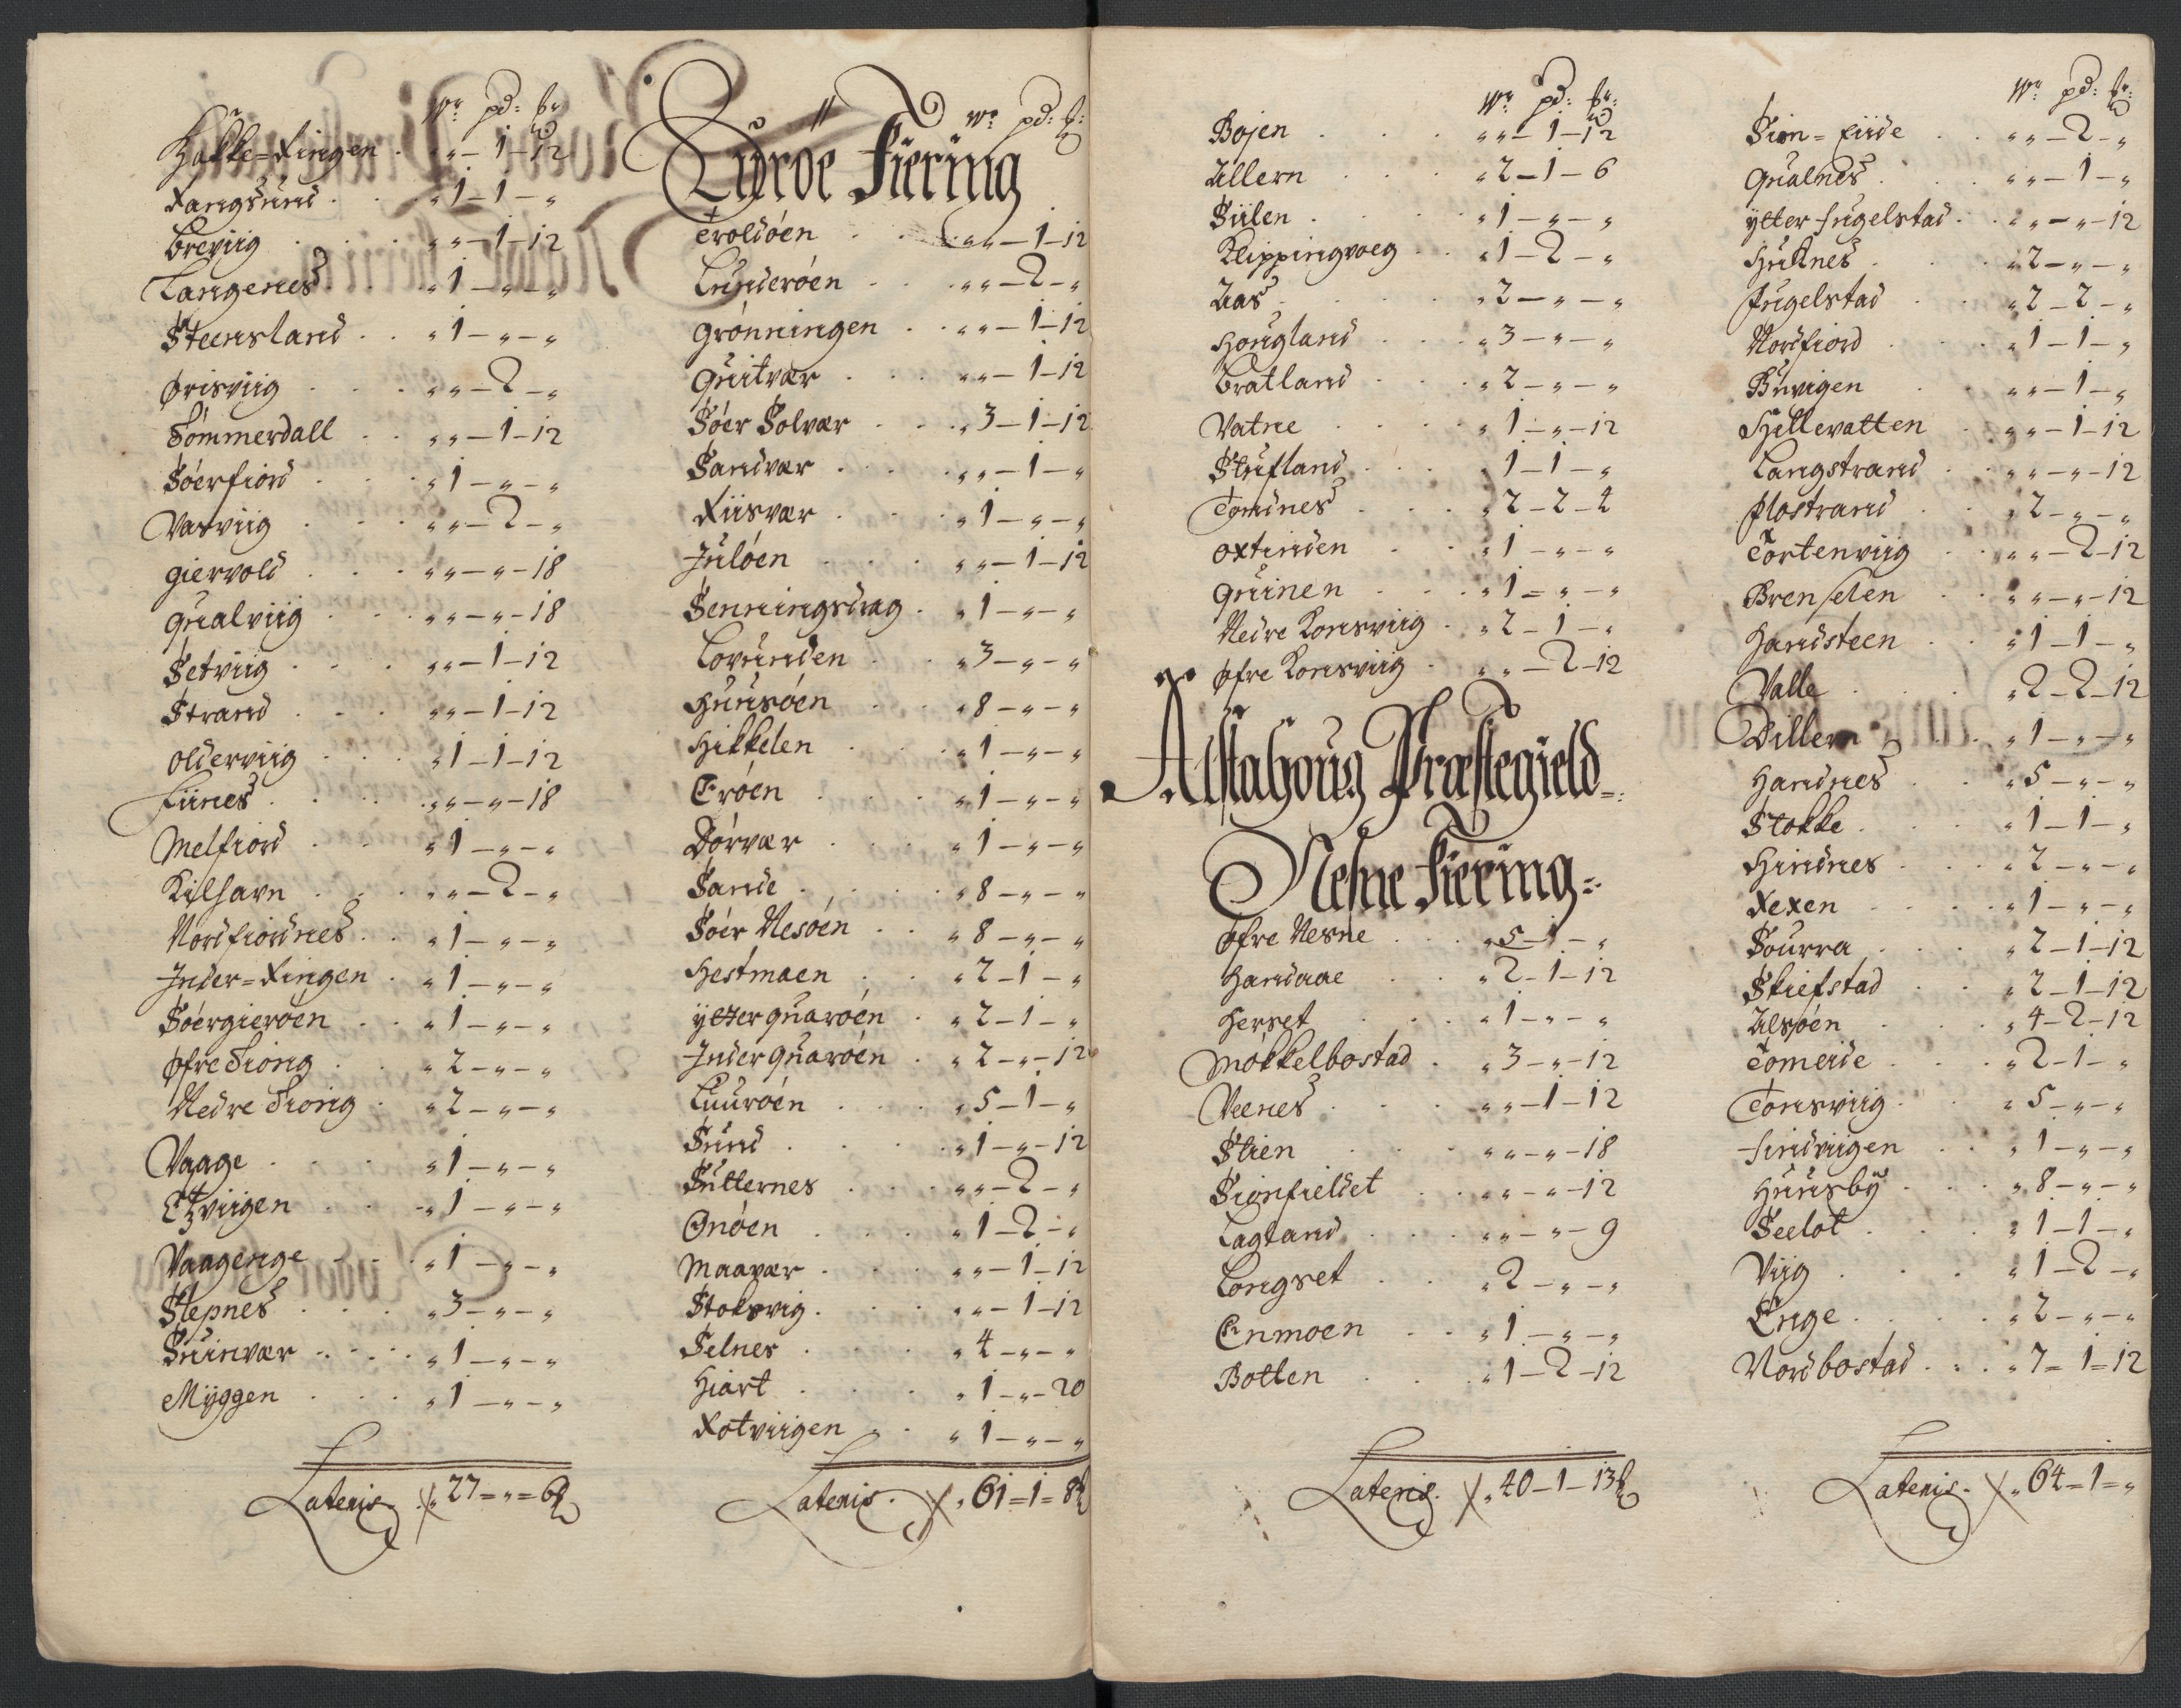 Wr pd: ℔r
Hakke=Xingen . „„ – 1 – 12
Xangsund . . „ 1 – 1 – „
Breviig . . . „„ – 1 – 12
Langenes . . „ 1 – „ – „
Steensland . . „ 1 – „ – „
Ørisviig . . . „„ – 2 – „
Sømmerdall . . „„ – 1 – 12
Søerfiord . . . „ 1 – „ – „
Vasviig . . . „„ – 2 – „
Giervold . . . „„ – „ – 18
Qualviig . . . „„ – „ – 18
Setviig . . . „„ – 1 – 12
Strand . . . „„ – 1 – 12
Olderviig . . . „ 1 – 1 – 12
Fiines . . . „„ – „ – 18
Melfiord . . . „ 1 – „ – „
Kilhavn . . . „„ – 2 – „
Nordfiordnes . . „ 1 – „ – „
Inder=Xingen . „ 1 – „ – „
Søergierøen . . „ 1 – „ – „
Øfre Siong . . „ 2 – „ – „
Nedre Siong . „ 2 – „ – „
Vaage . . . „ 1 – „ – „
Etzviigen . . „ 1 – „ – „
Vaagenge . . . „ 1 – „ – „
Slepnes . . . „ 3 – „ – „
Suinvær . . . „ 1 – „ – „
Myggen . . . „ 1 – „ – „
Lateris. „ 27 = „ = 6 ℔
Wr pd: ℔:
Lurøe Fiering
Troldøen . . „„ – 1 – 12
Lunderøen . . „„ – 2 – „
Grønningen . . „„ – 1 – 12
Quitvær . . . „„ – 1 – 12
Søer Solvær . . „ 3 – 1 – 12
Sandvær . . . „„ – 1 – „
Xiisvær . . . „ 1 – „ – „
Juløen . . . „„ – 1 – 12
Senningsdrag . „ 1 – „ – „
Lovunden . . „ 3 – „ – „
Huusøen . . „ 8 – „ – „
Hikkelen . . . „ 1 – „ – „
Erøen . . . „ 1 – „ – „
Dørvær . . . „ 1 – „ – „
Sande . . . „ 8 – „ – „
Søer Nesøen . . „ 8 – „ – „
Hestmaen . . „ 2 – 1 – „
Ytterquarøen . „ 2 – 1 – „
Inderquarøen . „ 2 – „ – 12
Luurøen . . . „ 5 – 1 – „
Sund . . . „ 1 – „ – 12
Sutternes . . „„ – 2 – „
Onøen . . . „ 1 – 2 – „
Maavær . . . „„ – 1 – 12
Stoksvig . . . „„ – 1 – 12
Selnes . . . „ 4 – „ – „
Hiart . . . „ 1 – „ – 20
Xotviigen . . „ 1 – „ – „
Lateris. „ 61 = 1 = 8 ℔
Wr pd: ℔r:
Bojen . . . „„ – 1 – 12
Ullern . . . „ 2 – 1 – 6
Siilen . . . „ 1 – „ – „
Klippingvaeg . . „ 1 – 2 – „
Aas . . . „ 2 – „ – „
Hougland . . . „ 3 – „ – „
Bratland . . . „ 2 – „ – „
Vatne . . . „ 1 – „ – 12
Stufland . . . „ 1 – 1 – „
Tomnes . . . „ 2 – 2 – 4
Oxtinden . . „ 1 – „ – „
Quinen . . . „ 1 – „ – „
Nedre Konsviig . „ 2 – 1 – „
Øfre Konsviig . „„ – 2 – 12
Alstahoug Præstegield
Nesne Fiering
Øfre Nesne . . . „ 5 – 1 – „
Handaae . . „ 2 – 1 – 12
Herset . . . „ 1 – „ – „
Møkkelbostad . „ 3 – „ – 12
Veenes . . . „„ – 1 – 12
Stien . . . „„ – „ – 18
Sionfieldet . . „„ – „ – 12
Lagland . . . „„ – „ – 9
Longset . . „ 2 – „ – „
Enmoen . . „ 1 – „ – „
Botten . . . „ 1 – 2 – 12
Lateris. „ 40 – 1 – 13 ℔
Wr pd: ℔r:
Sion=Eiide . . „„ – 2 – „
Qualnes . . . „„ – 1 – „
Ytter Fugelstad . „„ – „ – 12
Huknes . . . „ 2 – „ – „
Fugelstad . . „ 2 – 2 – „
Nordfiord . . . „ 1 – 1 – „
Buvigen . . „„ – 1 – „
Hellevatten . . „„ – 1 – 12
Langstrand . . „„ – „ – 12
Flostrand . . „ 2 – „ – „
Tortenviig . . „„ – 2 – 12
Brenselen . . „„ – „ – 12
Handsteen . . „ 1 – 1 – „
Valle . . . „ 2 – 2 – 12
Dillern . . . „ 1 – „ – „
Handnes . . „ 5 – „ – „
Stokke . . . „ 1 – 1 – „
Hindnes . . . „ 2 – „ – „
Xexen . . . „ 1 – „ – „
Sourra . . . „ 2 – 1 – 12
Skiefstad . . „ 2 – 1 – 12
Alsøen . . . „ 4 – 2 – 12
Tomeide . . . „ 2 – 1 – „
Tonsviig . . . „ 5 – „ – „
Findviigen . . „ 1 – „ – „
Huusby . . . „ 8 – „ – „
Seelot . . . „ 1 – 1 – „
Viig . . . „ 1 – 2 – „
Enge . . . „ 2 – „ – „
Nordbostad . . „ 7 = 1 = 12
Lateris. „ 64 = 1 = „